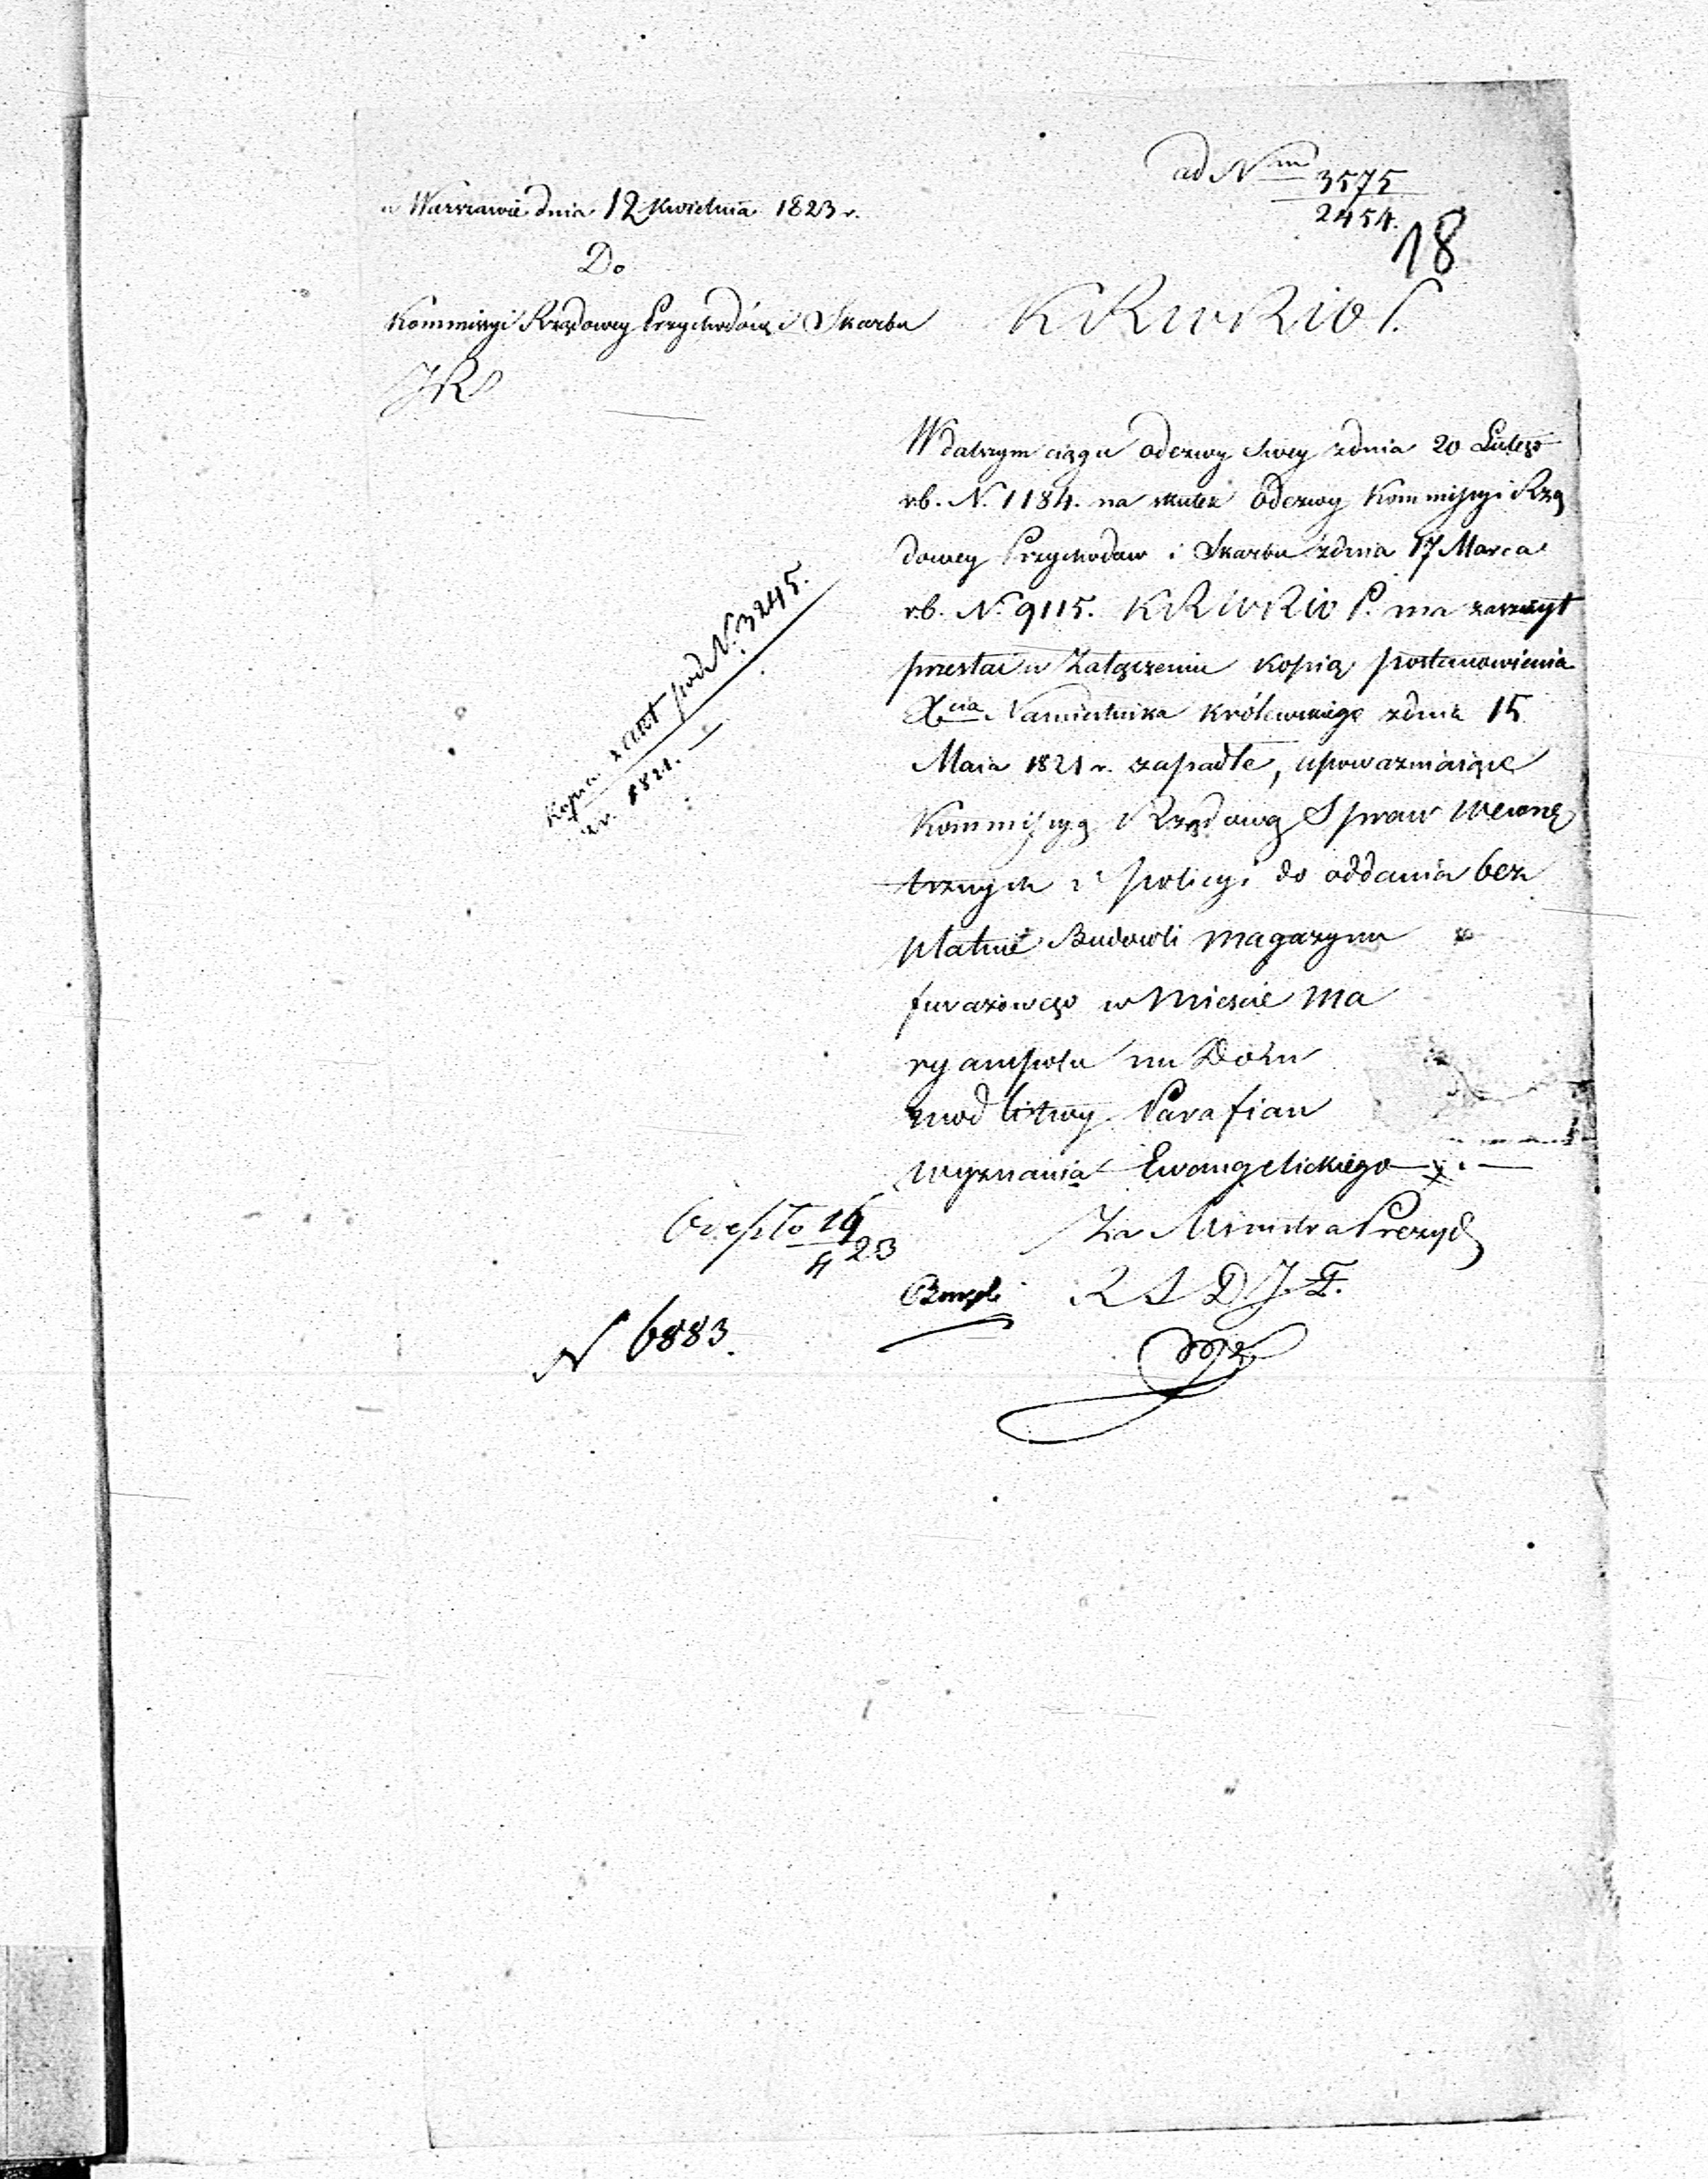 ad N<sup>m</sup> 3575
2454.
18
w Warszawie dnia 12 Kwietnia 1823 r.
Do
Kommissyi Rządowey Przychodów i Skarbu
KRWRiOP.
W dalszym ciągu odezwy swey z dnia 20 Lutego
r.b. N. 1184. na skutek odezwy Kommissyi Rzą
dowey Przychodow i Skarbu z dnia 17 Marca
r.b. N. 9115. KRWRiOP. ma zaszczyt
przesłać w załączeniu kopią postanowienia
Xcia Namiestnika Królewskiego z dnia 15
Maia 1821 r. zapadłe, upoważniaiące
Kommissyą Rządową Spraw Wewnę
trznych i Policyi do oddania bez
płatnie Budowli magazynu
furażowego w Mieście Ma
ryampolu na Dom
modlitwy Parafian
wyznania Ewangelickiego
Kopia z akt pod N. 3245.
z r. 1821.
Za Ministra Prezyd
R S D J. F.
16/4 23
N 6883.